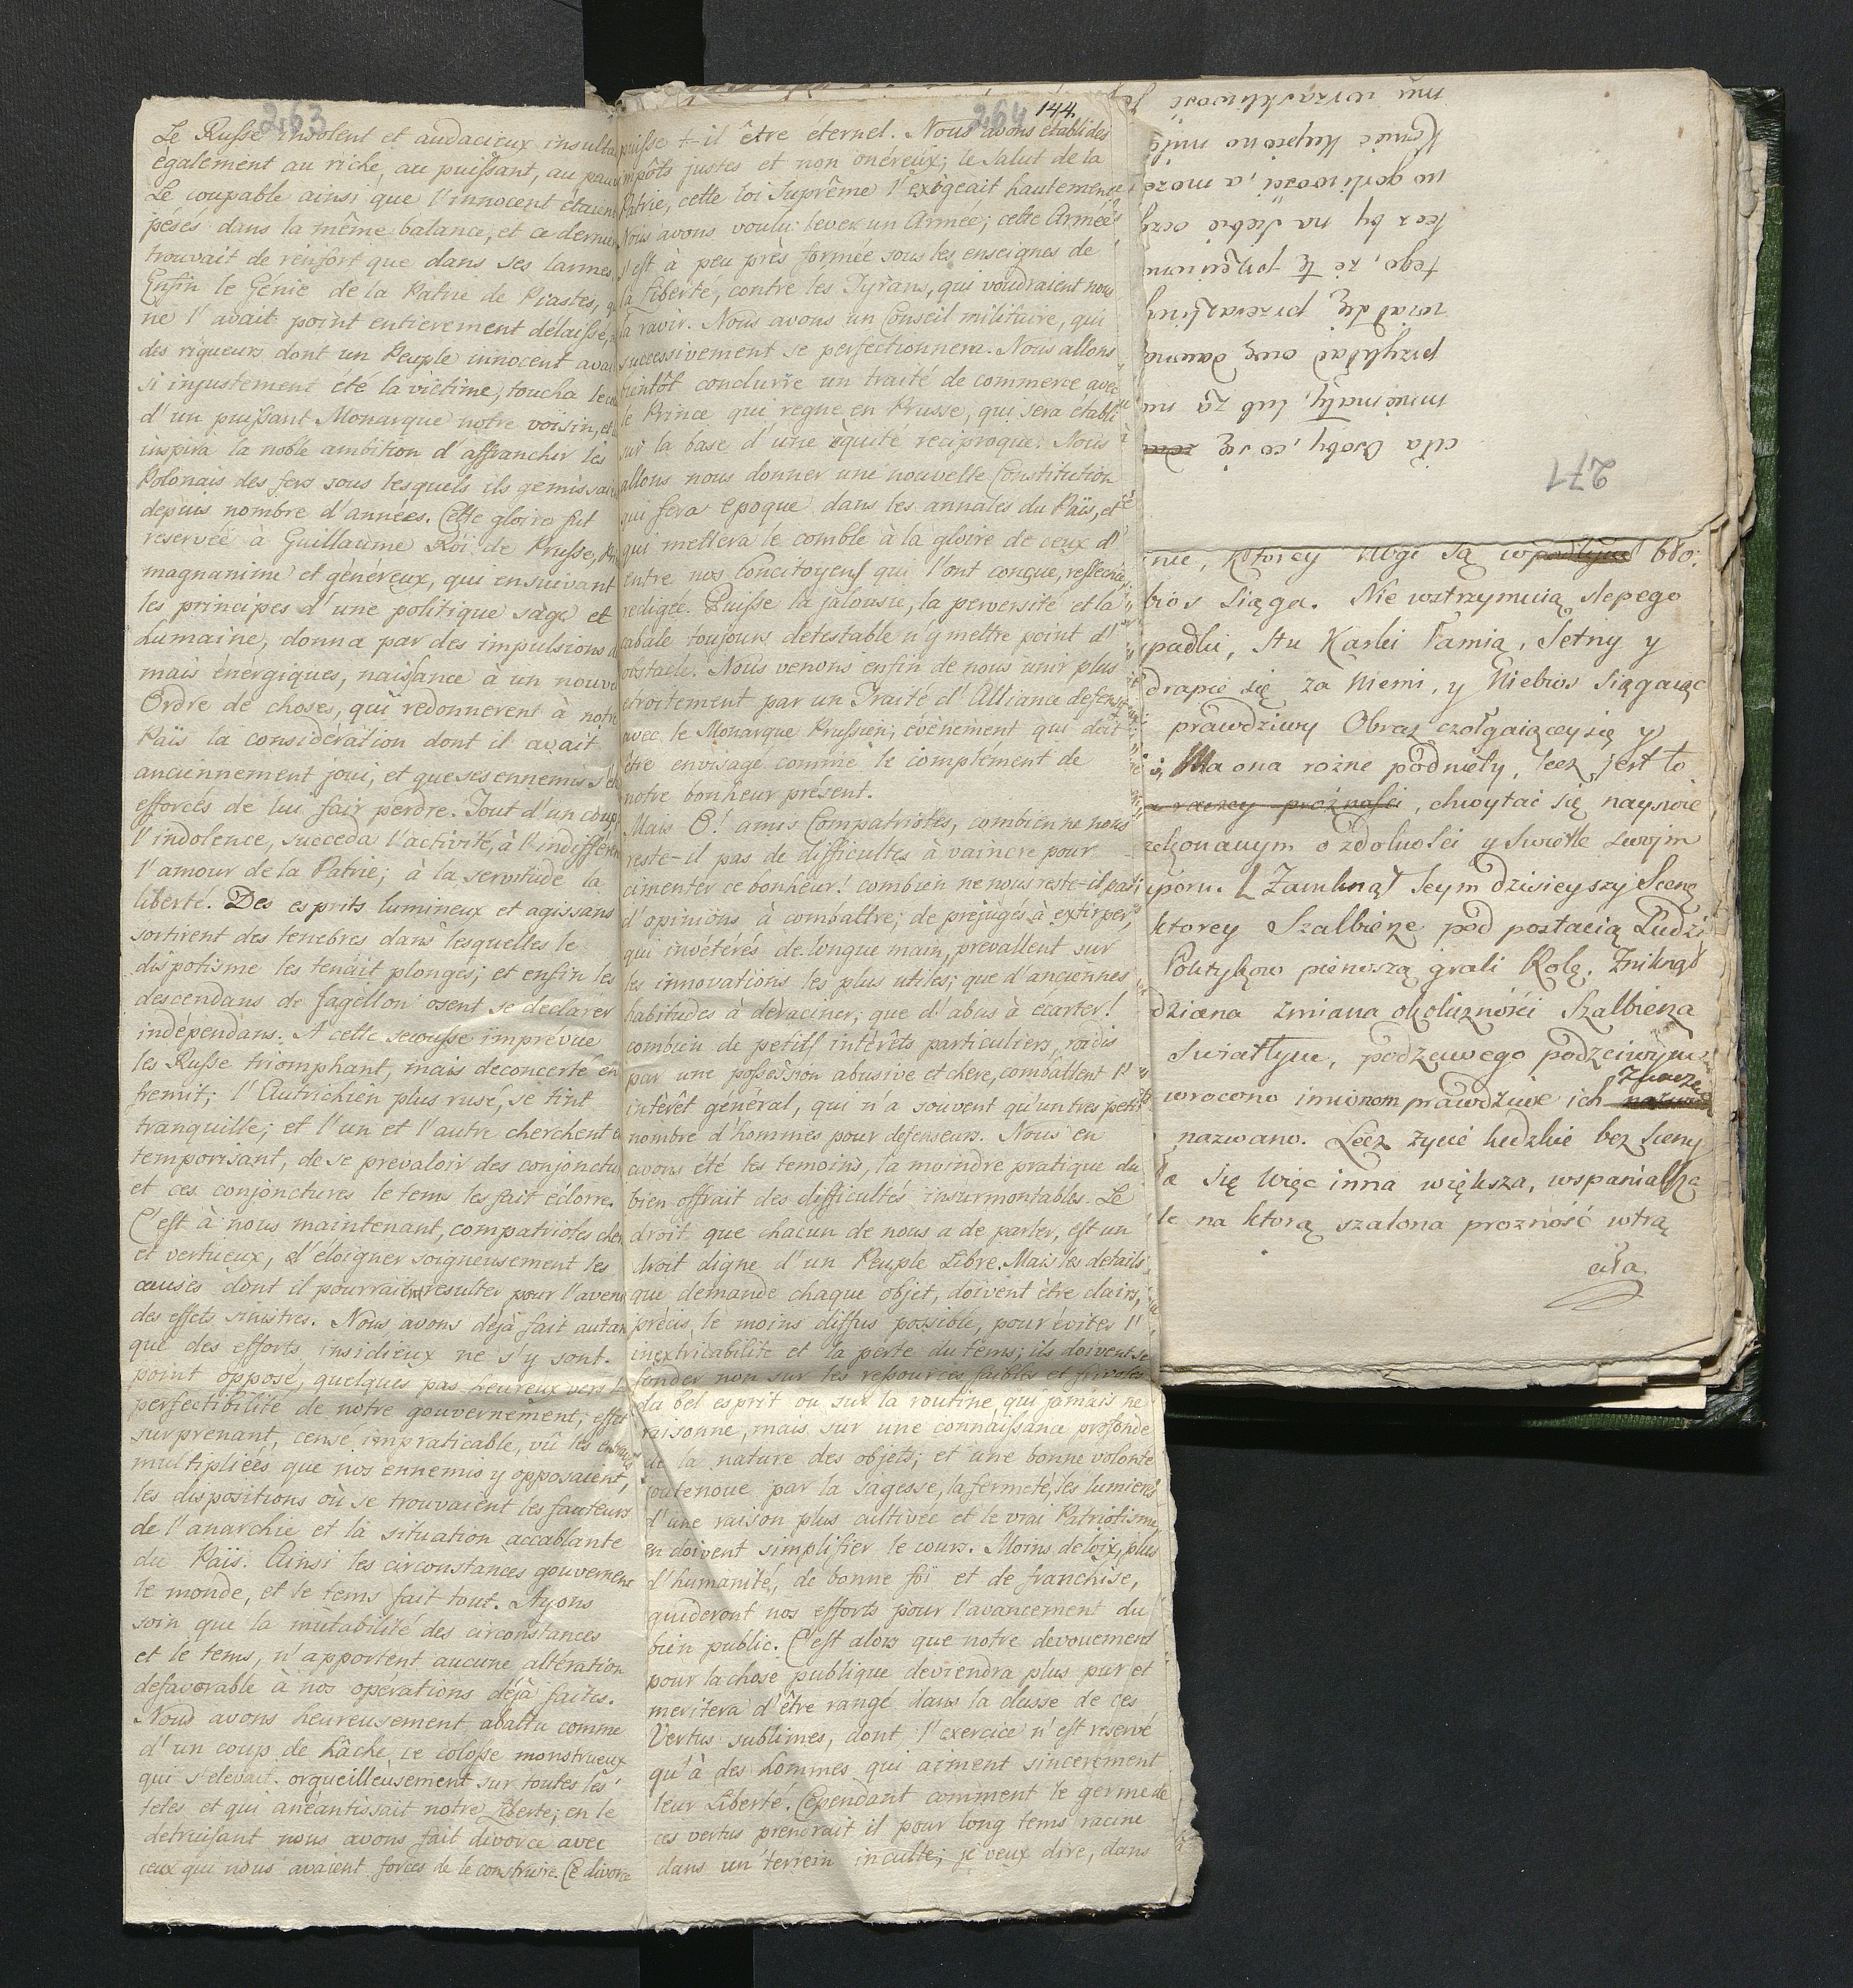 263
Le Russe insolent et audacieux insulta
également au riche, au puissant, au pauv
Le coupable ainsi que l'innocent étaient
pésés dans la même balance, et ce dernier
trouvait de renfort que dans ses larmes.
Enfin le Génie de la Patrie de Piastes, q
ne l'avait point entierement délaissé,
des rigueurs dont un Peuple innocent avai
si injustement été la victime, toucha le
d'un puissant Monarque notre voisin, et
inspira la noble ambition d'affranchir les
Polonais des fers sous lesquels ils gemissai
depuis nombre d'années. Cette gloire fut
reservée à Guillaume Roi de Prusse,
magnanime et généreux, qui en suivant
les principes d'une politique sage et
humaine, donna par des impulsions d
mais énérgiques, naissance à un nouve
Ordre de choses, qui redonnerent à notre
Païs la considération dont il avait
anciennement joui, et que ses ennemis s'et
efforcés de lui fair perdre. Tout d'un coup
l'indolence, succeda l'activité, à l'indifféren
l'amour de la Patrie; à la servitude la
liberté. Des esprits lumineux et agissans
sortirent des tenebres dans lesquelles le
dispotisme les tenait plongés; et enfin les
descendans de Jagellon osent se déclarér
indépendans. A cette secousse imprévue
les Russe triomphant, mais deconcerté en
fremit; l'Autrichien plus rusé, se tint
tranquille; et l'un et l'autre cherchent e
temporisant, de se prevaloir des conjonctu
et ces conjonctures le tems les fait éclorre.
C'est à nous maintenant, compatriotes cher
et vertueux, d'éloigner soigneusement les
causes dont il pourraient resulter pour l'aveni
des effets sinistres. Nous avons déjà fait autan
que des efforts insidieux ne s'y sont
point opposé, quelques pas heureux vers l
perfectibilité de notre gouvernement; effet
surprenant, censé impraticable, vû les entraves
multipliées que nos ennemis y opposaient,
les dispositions où se trouvaient les fauteurs
de l'anarchie et la situation accablante
du Païs. Ainsi les circonstances gouvernent
le monde, et le tems fait tout. Ayons
soin que la mutabilité des circonstances
et le tems, n'apportent aucune altération
defavorable à nos opérations déjà faites.
Nous avons heureusement abattu comme
d'un coup de hâche, ce colosse monstrueux
qui s'elevait orgueilleusement sur toutes les
tetes et qui anéantissait notre Liberte; en le
detruisant nous avons fait divorce avec
ceux qui nous avaient forcés de le construire. Ce divorce
264 144
puisse t-il être éternel. Nous avons établi des
impôts justes et non onéreux; le Salut de la
Patrie, cette loi Suprême l'exigeait hautement
Nous avons voulu lever un Armée; cette Armée
s'est à peu près formée sous les enseignes de
la Liberté, contre les Tyrans, qui voudraient nous
la ravir. Nous avons un Conseil militaire, qui
successivement se perfectionnera. Nous allons
bientôt conclurre un traité de commerce avec
le Prince qui regne en Prusse, qui sera établi
sur la base d'une équité reciproque. Nous
allons nous donner une nouvelle Constitution
qui fera epoque dans les annales du Païs, et
qui mettera le comble à la gloire de ceux d'
entre nos Concitoyens qui l'ont conçue, reflechie,
redigée. Puisse la jalousie, la perversité et la
cabale toujours detestable n'y mettre point d'
obstacle. Nous venons enfin de nous unir plus
etroitement par un Traité d'Alliance defensif
avec le Monarque Prussien; évènement qui doit
être envisagé comme le complément de
notre bonheur présent.
Mais O! amis Compatriotes, combien ne nous
reste-il pas de difficultés à vaincre pour
cimenter ce bonheur! combien ne nous reste-il pas
d'opinions à combattre; de préjugés à extirper,
qui invétérés de longue main, prévallent sur
les innovations les plus utiles; que d'anciennes
habitudes à deraciner; que d'abus à écarter!
combien de petits intérêts particuliers, roidis
par une possession abusive et chere, combattent l'
intèrêt général, qui n'a souvent qu'un tres petit
nombre d'hommes pour defenseurs. Nous en
avons été les temoins, la moindre pratique du
bien offrait des difficultés insurmontables. Le
droit que chacun de nous a de parler, est un
droit digne d'un Peuple Libre. Mais les details
que demande chaque objet, doivent être clairs,
précis, le moins diffus possible, pour éviter l'
inextricabilité et la perte du tems; ils doivent se
fonder non sur les ressources faibles et frivoles
du bel esprit ou sur la routine qui jamais ne
raisonne, mais sur une connaissance profonde
de la nature des objets; et une bonne volonté
soutenoue par la sagesse, la fermeté, les lumieres
d'une raison plus cultivée et le vrai Patriotisme,
en doivent simplifier le cours. Moins de loix, plus
d'humanité, de bonne foi et de franchise,
guideront nos efforts pour l'avancement du
bien public. C'est alors que notre devouement
pour la chose publique deviendra plus pur et
meritera d'être rangé dans la classe de ces
Vertus sublimes, dont l'exercice n'est reservé
qu'à des hommes qui aiment sincerement
leur Liberté. Cependant comment le germe de
ces vertus prendrait il pour long tems racine
dans un terrein inculte; je veux dire, dans
277
ciła Osoby, co się
mniemały, lub za
przykład owę dawną
wiał się przeraźliwy
tego, że tę
lecz by na siebie oczy
no gorliwości, a może
Koniec kupiono
mu wrzaskliwość
nie, ktorey Nogi są w bło:
bios sięga. Nie wztrzymuią slepego
padki, Stu Karki łamią, Setny y
drapie się za Niemi, y Niebios sięgaiąc
prawdziwy Obraz czołgaiącey się y
Ma ona rożne podniety, lecz jest to
prożnosci, chwytać się nayswie
zekonanym o zdolności y Swietle swoim
poru. Zamknął Seym dzisieyszy Scenę
ktorey Szalbierze pod postacią Ludzi
Politykow pierwszą grali Rolę. Zniknął
dziana zmiana okoliczności Szalbierza
Swiatłym, podzciwego podzciwym
wrocono imionom prawdziwe ich Znacze
nazwano. Lecz życie ludzkie bez Sceny
a się Więc inna większa, wspanialsza
le na ktorą szalona prozność wtrą
ciła.